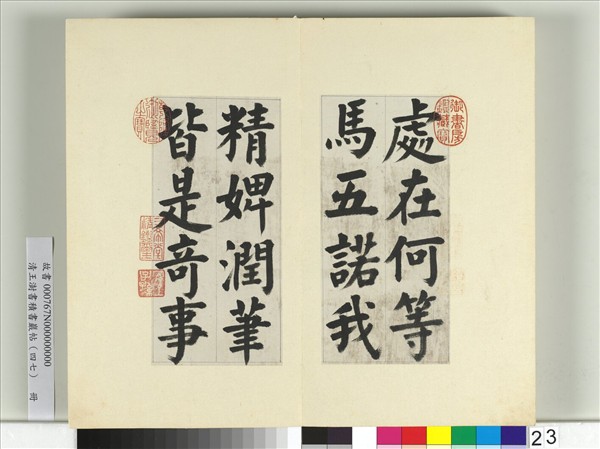 處在何等
馬五諾我
精婢潤筆
皆是奇事
御書房鑑藏寶
故書 000767N000000000
清王澍書積書巖帖（四七） 冊
23